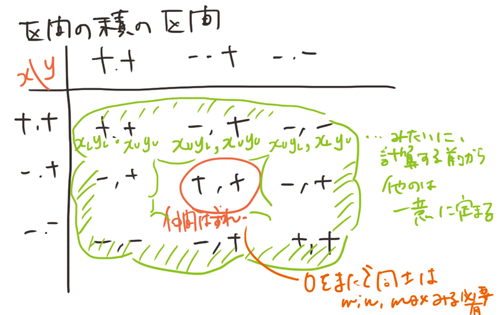 区間の積の区間
x\y +.+ -.+ -.-
+.+ +.+ -,+ -,-
xLyL, xUyU xUyL, xUyU xUyL, xLyU
-.+ -,+ +,+ -,+
仲間はずれ
-.- -,- -,+ +,+
...みたいに、
計算する前から
他のは
一意に定まる
0をまたぐ同士は
min, maxみる必要有